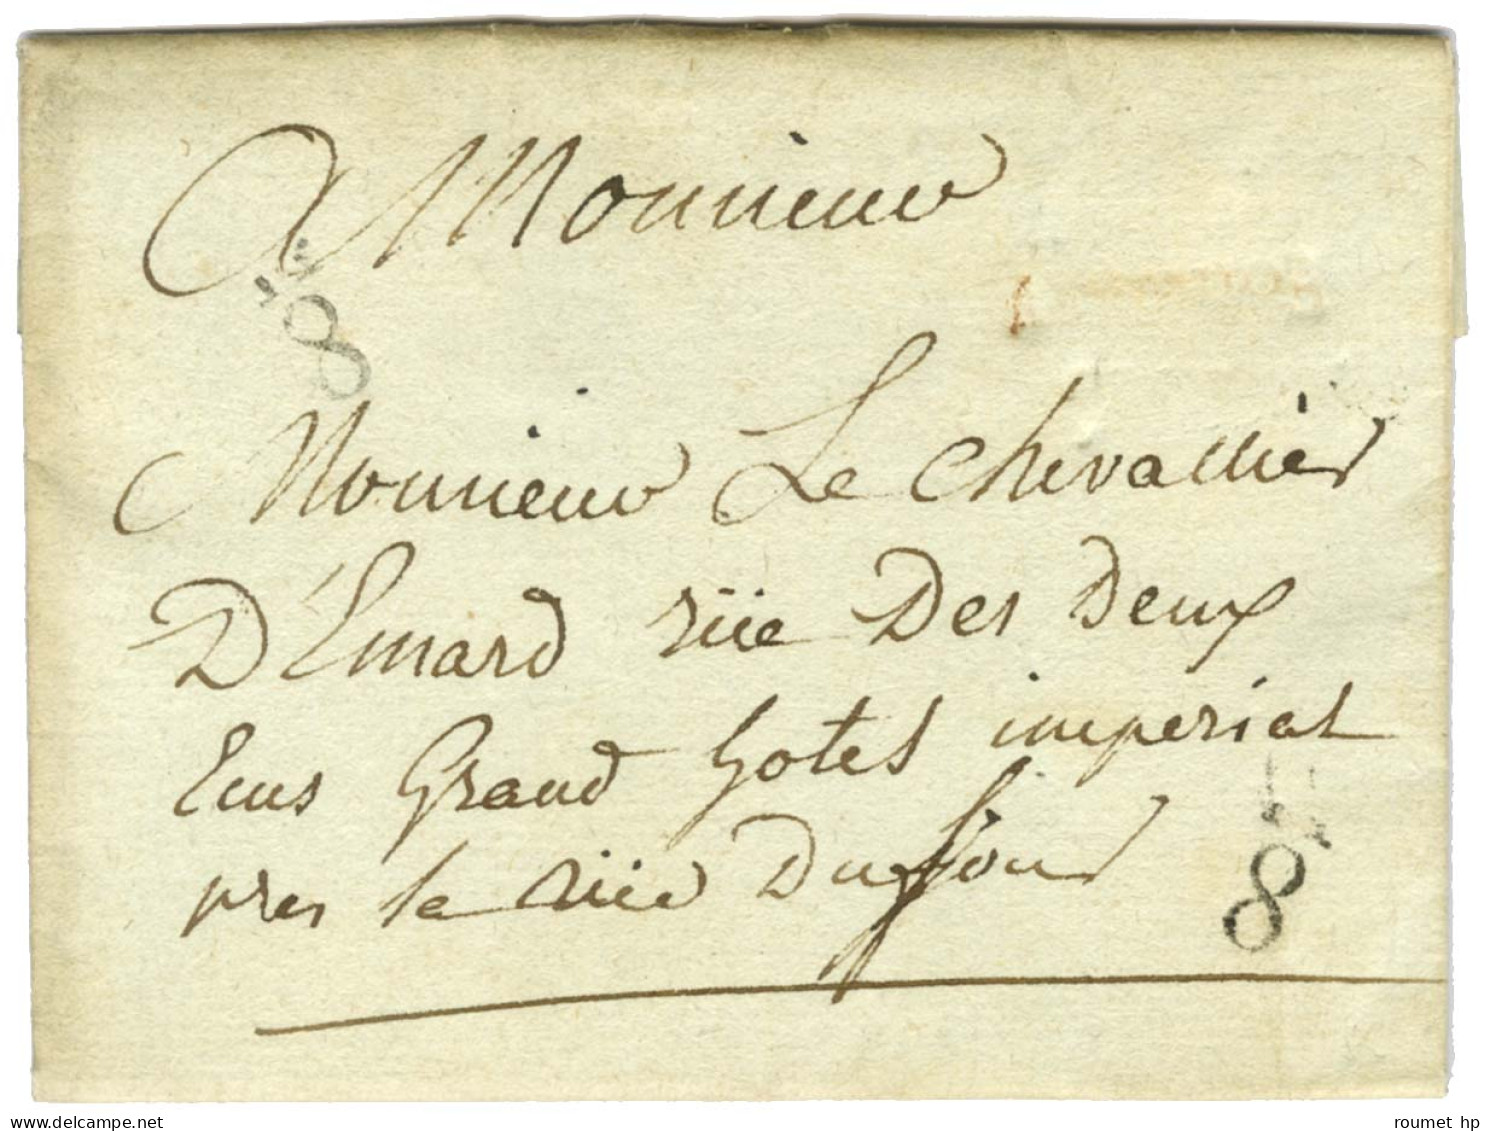 A Monsieur
8
Monsieur Le chevallier
D'Emard rüe Des Deux
Ecus Grand hotel imperial
pres la rüe Du four
8
www.delcampe.net
roumet hp